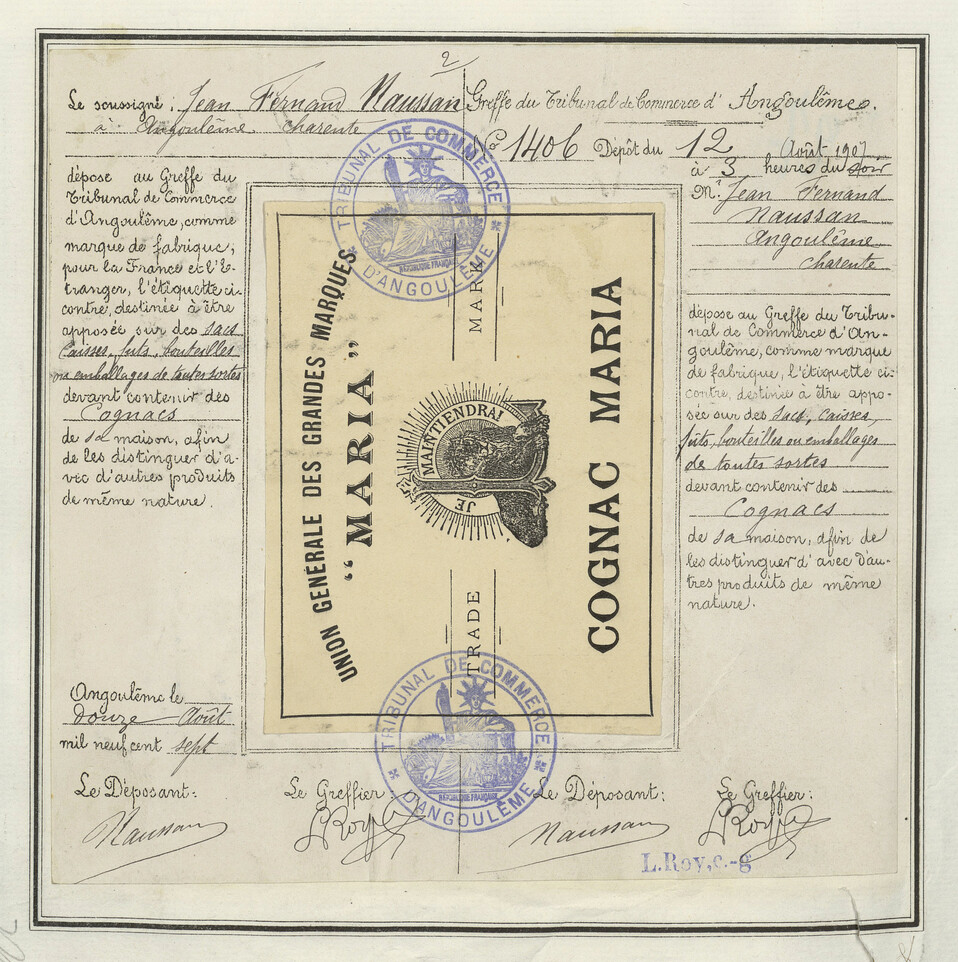 2
Le soussigné, Jean Fernand Naussan
à Angoulême charente
dépose au Greffe du
Tribunal de Commerce
d'Angoulême, comme
marque de fabrique,
pour la France et l'É-
tranger, l'étiquette ci-
contre, destinée à être
apposée sur des sacs
Caisses, futs, bouteilles
ou emballages de toutes sortes
devant contenir des
Cognacs
de sa maison, afin
de les distinguer d'a-
vec d'autres produits
de même nature.
Angoulême le
douze Août
mil neuf cent sept
Le Déposant:
Naussan
Le Greffier:
LRoy
UNION GÉNÉRALE DES GRANDES MARQUES
“MARIA”
TRADE MARK
JE MAINTIENDRAI
COGNAC MARIA
TRIBUNAL DE COMMERCE
D'ANGOULÊME
RÉPUBLIQUE FRANÇAISE
TRIBUNAL DE COMMERCE
D'ANGOULÊME
RÉPUBLIQUE FRANÇAISE
Greffe du Tribunal de Commerce d'Angoulême.
No 1406 Dépôt du 12 Août 1907
à 3 heures du soir
Mr. Jean Fernand
Naussan
Angoulême
charente
dépose au Greffe du Tribu-
nal de Commerce d'An-
goulême, comme marque
de fabrique, l'étiquette ci-
contre, destinée à être appo-
sée sur des sacs, caisses,
futs, bouteilles ou emballages
de toutes sortes
devant contenir des
Cognacs
de sa maison, afin de
les distinguer d'avec d'au-
tres produits de même
nature.
Le Déposant:
Naussan
Le Greffier:
LRoy
L. Roy, c.-g